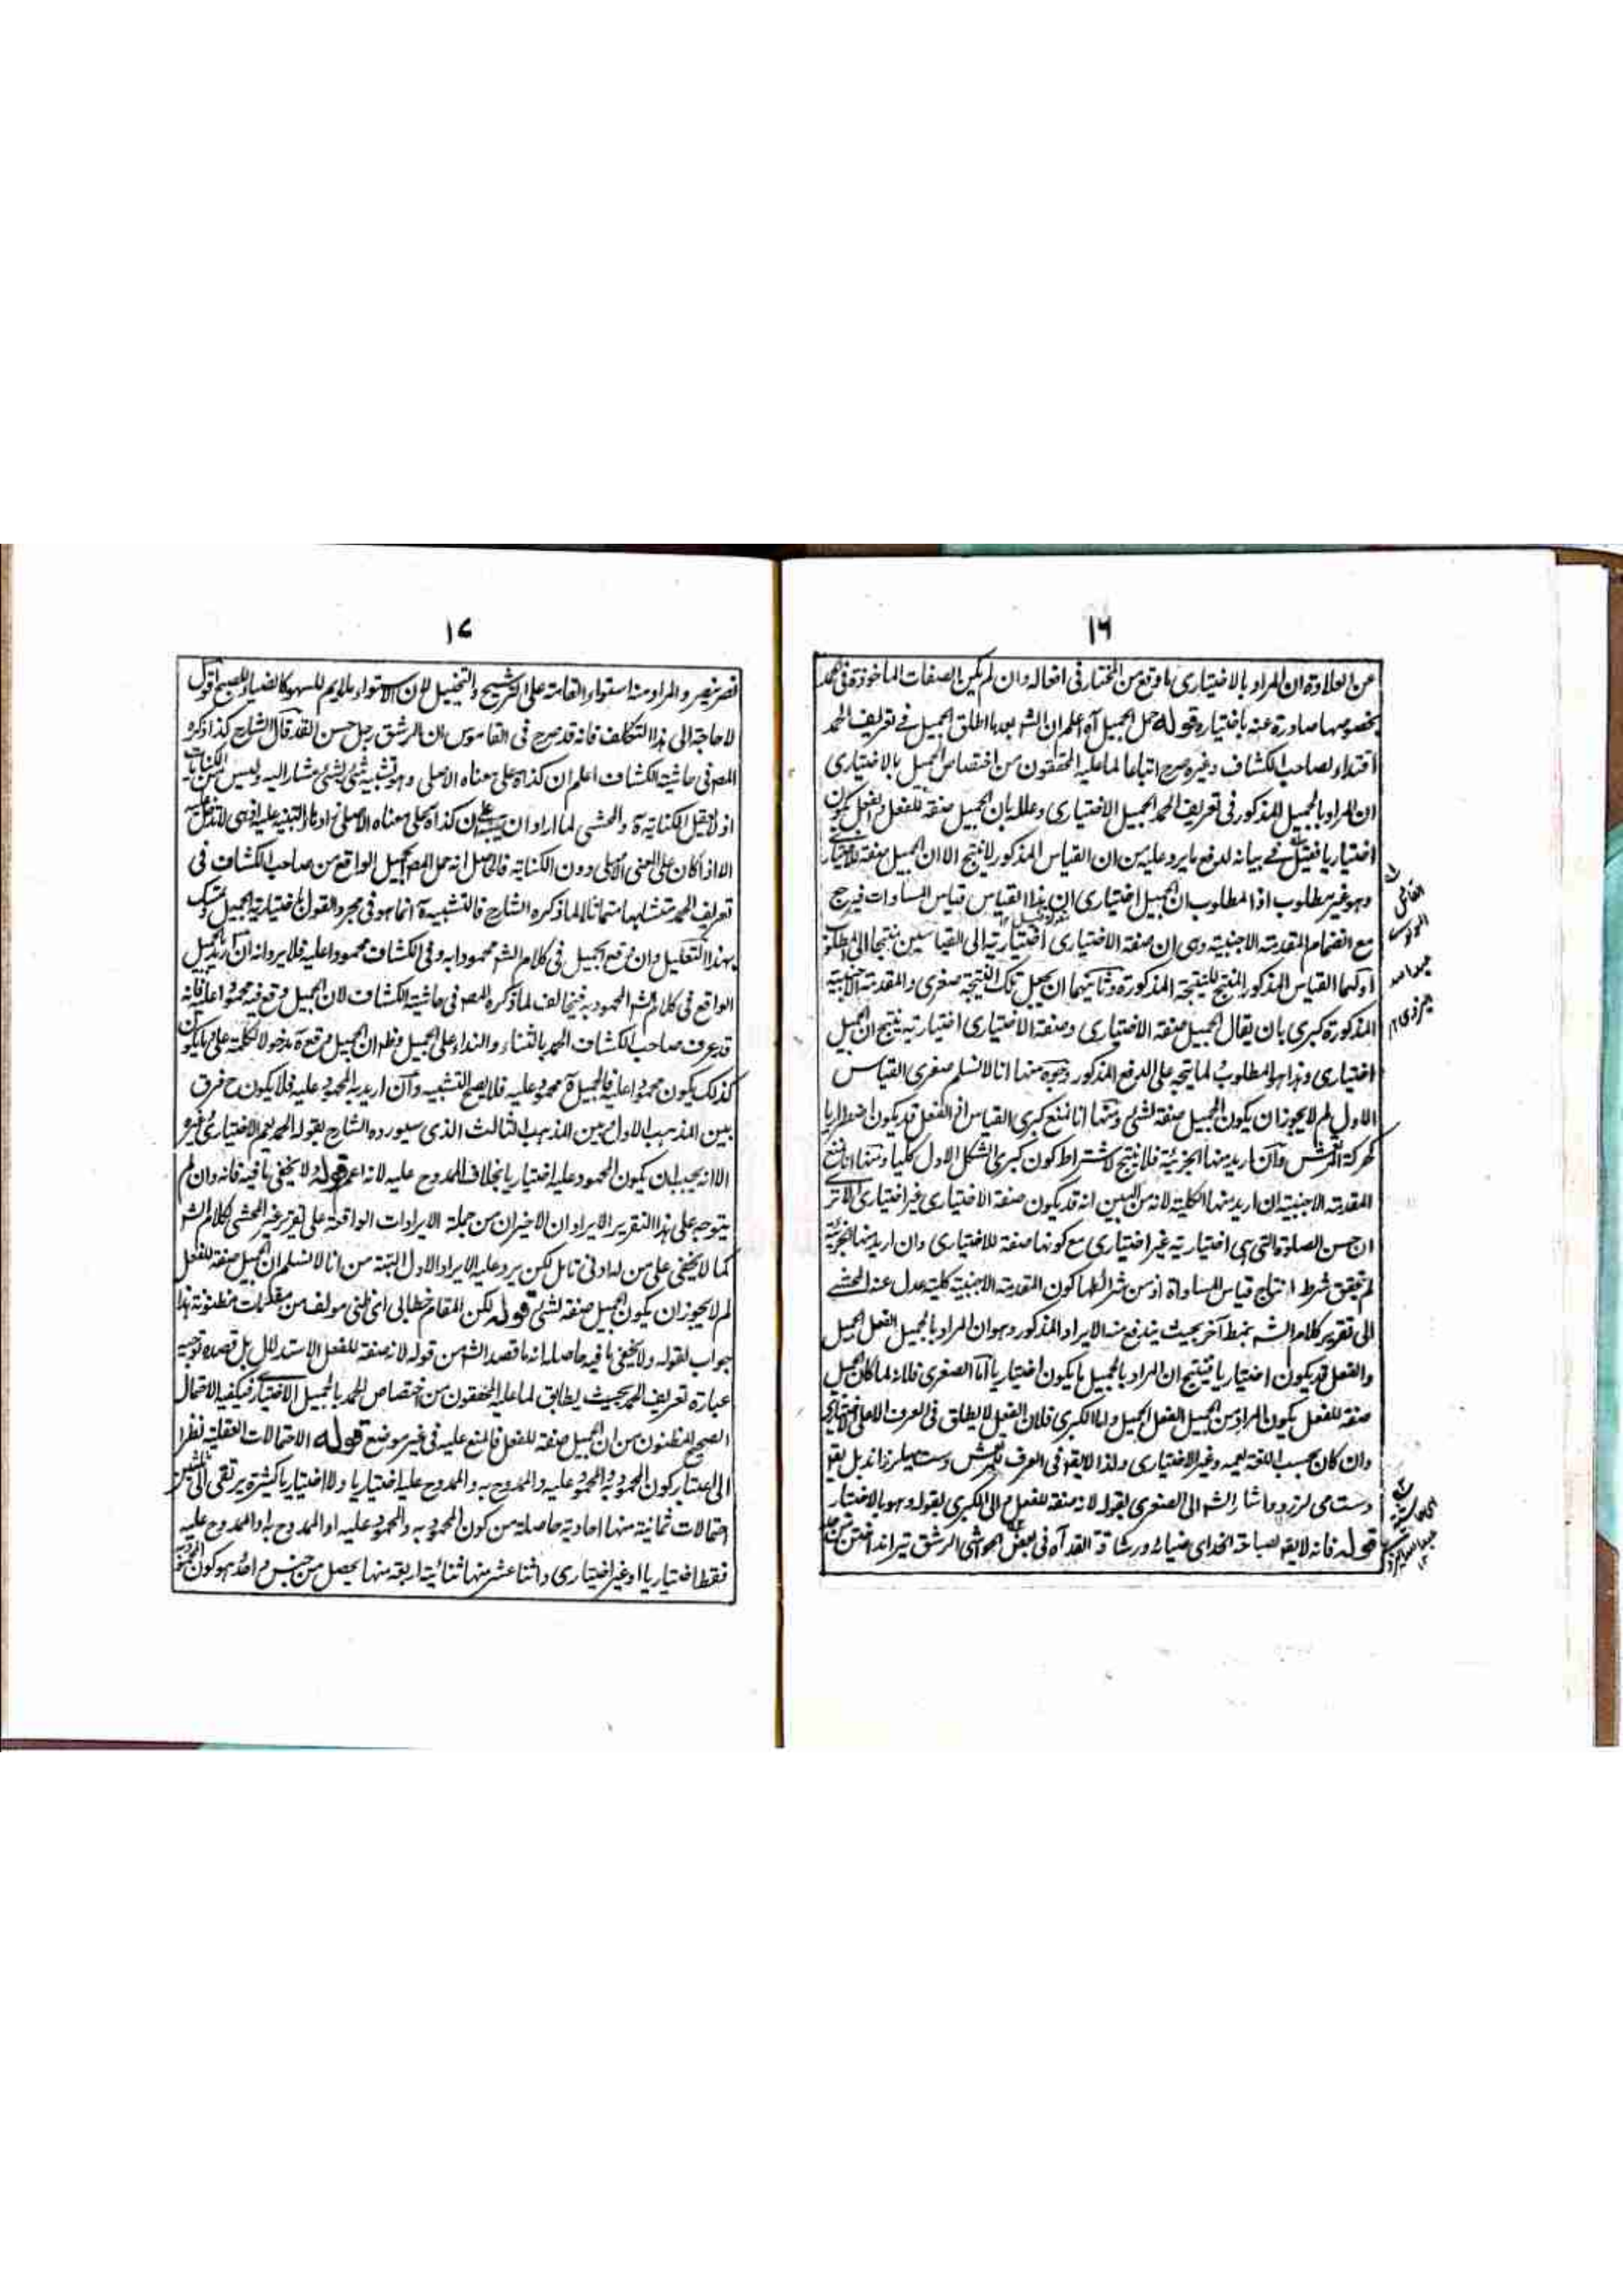 ١٦
عن العلاوة ان المراد بالاختياری ما وقع من المختار فی افعاله وان لم یکن الصفات الماخوذة فی الحمد
بخصوصها صادرة عنه باختیاره قوله حمل الجمیل آه اعلم ان الشہ بعد ما اطلق الجمیل فی تعریف الحمد
اقتداء لصاحب الکشاف وغیره صرح اتباعا لما علیه المحققون من اختصاص الجمیل بالاختیاری
ان المراد بالجمیل المذکور فی تعریف الحمد الجمیل الاختیاری وعلله بان الجمیل صفة للفعل والفعل یکون
اختیاریا فقیل فی بیانه لدفع ما یرد علیه من ان القیاس المذکور لا ینتج الا ان الجمیل صفة للاختیاری
وهو غیر مطلوب اذ المطلوب ان الجمیل اختیاری ان هذا القیاس قیاس المساوات فیرجع
مع انضمام المقدمة الاجنبیة وهی ان صفة الاختیاری اختیاریة الی القیاسین ینتجا الی المطلوب
اولهما القیاس المذکور المنتج للنتیجة المذکورة وثانیهما ان یجعل تلک النتیجة صغری والمقدمة الاجنبیة
المذکورة کبری بان یقال الجمیل صفة الاختیاری وصفة الاختیاری اختیاریة ینتج ان الجمیل
اختیاری وهذا هو المطلوب لما یتجه علی الدفع المذکور وجوه منها انا لا نسلم صغری القیاس
الاول لم لا یجوز ان یکون الجمیل صفة لشئ ومنها انا نمنع کبری القیاس اذ الفعل قد یکون اضطراریا
کحرکة المرتعش وان ارید منها الجزئیة فلا ینتج لاشتراط کون کبری الشکل الاول کلیا ومنها انا نمنع
المقدمة الاجنبیة ان ارید منها الکلیة لانه من البین انه قد یکون صفة الاختیاری غیر اختیاری الا تری
ان حسن الصلوة التی هی اختیاریة غیر اختیاری مع کونها صفة للاختیاری وان ارید منها الجزئیة
لم یتحقق شرط انتاج قیاس المساواة اذ من شرائطها کون المقدمة الاجنبیة کلیة عدل عنه المحشی
الی تقریر کلام الشہ بنمط آخر بحیث یندفع منه الایراد المذکور وهو ان المراد بالجمیل الفعل الجمیل
والفعل قد یکون اختیاریا فینتج ان المراد بالجمیل ما یکون اختیاریا اما الصغری فلانه لما کان الجمیل
صفة للفعل یکون المراد من الجمیل الفعل الجمیل واما الکبری فلان الفعل لا یطلق فی العرف الا علی الاختیاری
وان کان بحسب اللغة یعمه وغیر الاختیاری ولذا لا یقہ فی العرف للمرتعش دست میلرزاند بل یقہ
دست می لرزد واشار الشہ الی الصغری بقوله لانه صفة للفعل والی الکبری بقوله وهو بالاختیار
قوله فانه لا یقہ لصباحة الخد ای ضیائه ورشاقة القد آه فی بعض الحواشی الرشق تیر انداختن من حد
١٧
نصر ینصر والمراد منه استواء القامة علی الترشیح والتخییل لان الاستواء ملایم للسهم کالضیاء للصبح اقول
لا حاجة الی هذا التکلف فانه قد صرح فی القاموس ان الرشق رجل حسن القد قال الشارح کذا ذکره
المصہ فی حاشیة الکشاف اعلم ان کذا ه علی معناه الاصلی وهو تشبیه شئ لشئ مشار الیه ولیس من الکنایات
اذ لا یقبل الکنایة ه والمحشی لما اراد ان ینبه علی ان کذا ه علی معناه الاصلی زاد کاف التنبیه علیه اذ هی لا تدخل علیه
الا اذا کان علی المعنی الاصلی دون الکنایة فالحاصل انه حمل المصہ الجمیل الواقع من صاحب الکشاف فی
تعریف الحمد متشابها متماثلا لما ذکره الشارح فالتشبیه ه انما هو فی مجرد القول باختیاریة الجمیل وتمسک
بهذا التعلیل وان وقع الجمیل فی کلام الشہ محمودا به وفی الکشاف محمودا علیه فلا یرد انه ان ارید بالجمیل
الواقع فی کلام الشہ المحمود به فیخالف لما ذکره المصہ فی حاشیة الکشاف لان الجمیل وقع فیه محمودا علیه فانه
قد عرف صاحب الکشاف الحمد بالثناء والنداء علی الجمیل وظہ ان الجمیل وقع ه مدخولا لکلمة علی وما یکون
کذلک یکون محمودا علیه فالجمیل ه محمود علیه فلا یصح التشبیه وان ارید به المحمود علیه فلا یکون ح فرق
بین المذهب الاول وبین المذهب الثالث الذی سیورده الشارح بقوله الحمد یعم الاختیاری وغیره
الا انه یجب ان یکون المحمود علیه اختیاریا بخلاف الممدوح علیه لانه اعم قوله ولا یخفی ما فیه فانه وان لم
یتوجه علی هذا التقریر الایرادان الاخیران من جملة الایرادات الواقعة علی تقریر غیر المحشی لکلام الشہ
کما لا یخفی علی من له ادنی تامل لکن یرد علیه الایراد الاول البتة من انا لا نسلم ان الجمیل صفة للفعل
لم لا یجوز ان یکون الجمیل صفة لشئ قوله لکن المقام خطابی ای ظنی مولف من مقدمات مظنونة هذا
جواب لقوله ولا یخفی ما فیه حاصله انه ما قصد الشہ من قوله لانه صفة للفعل الاستدلال بل قصده توجیه
عبارة تعریف الحمد بحیث یطابق لما علیه المحققون من اختصاص الحمد بالجمیل الاختیاری فیکفیه الاحتمال
الصحیح المظنون من ان الجمیل صفة للفعل فالمنع علیه فی غیر موضع قوله الاحتمالات العقلیة نظرا
الی اعتبار کون المحمود به والمحمود علیه والممدوح به والممدوح علیه اختیاریا ولا اختیاریا کثیرة یرتقی الی
احتمالات ثمانیة منها احادیة حاصلة من کون المحمود به والمحمود علیه او الممدوح به او الممدوح علیه
فقط اختیاریا او غیر اختیاری واثنا عشر منها ثنائیة اربعة منها یحصل من جنس واحد هو کون المحمود به